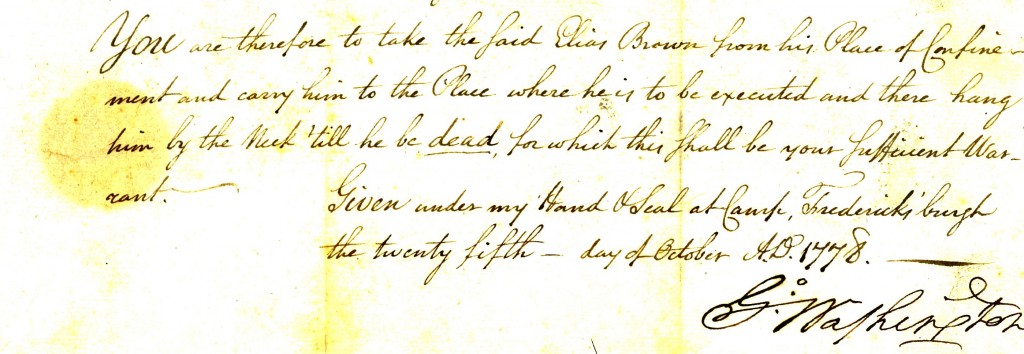 You are therefore to take the said Elias Brown from his Place of Confine-
ment and carry him to the Place where he is to be executed and there hang
him by the Neck 'till he be dead, for which this shall be your sufficient War-
rant.
Given under my Hand & Seal at Camp, Fredericks'burgh
the twenty fifth — day of October A.D. 1778.
Go: Washington